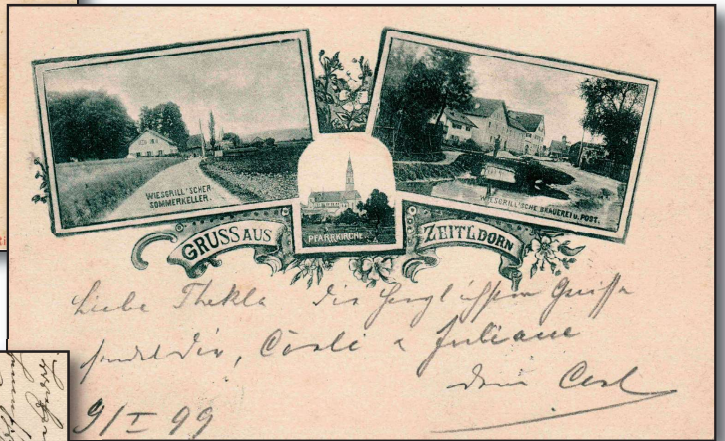 WIESGRILL'SCHER
SOMMERKELLER.
WIESGRILL'SCHE BRAUEREI u. POST.
PFARRKIRCHE
GRUSS AUS ZEITLDORN
Liebe Thekla die herzlichsten Grüsse
sendet dir, Cäsli & Juliane
dein Carl
9/I 99